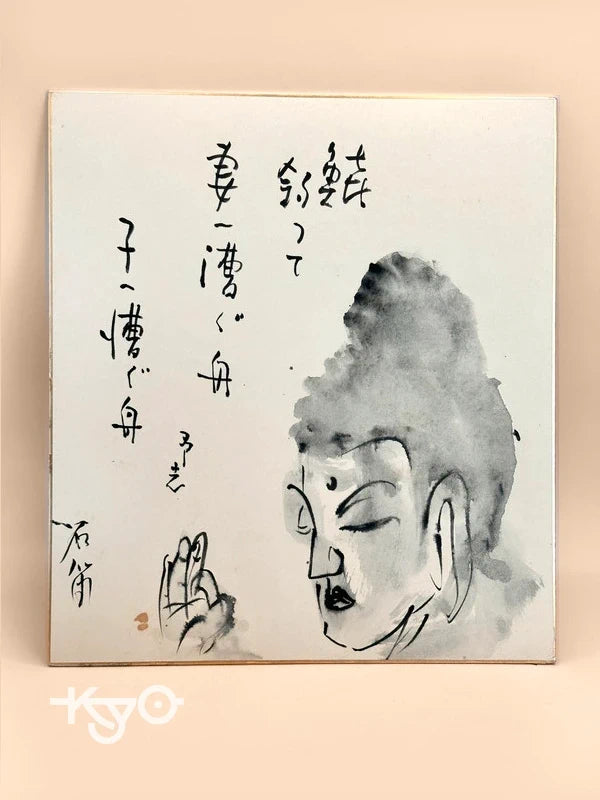 鱚
釣って
妻へ漕ぐ舟
子へ漕ぐ舟
KYO